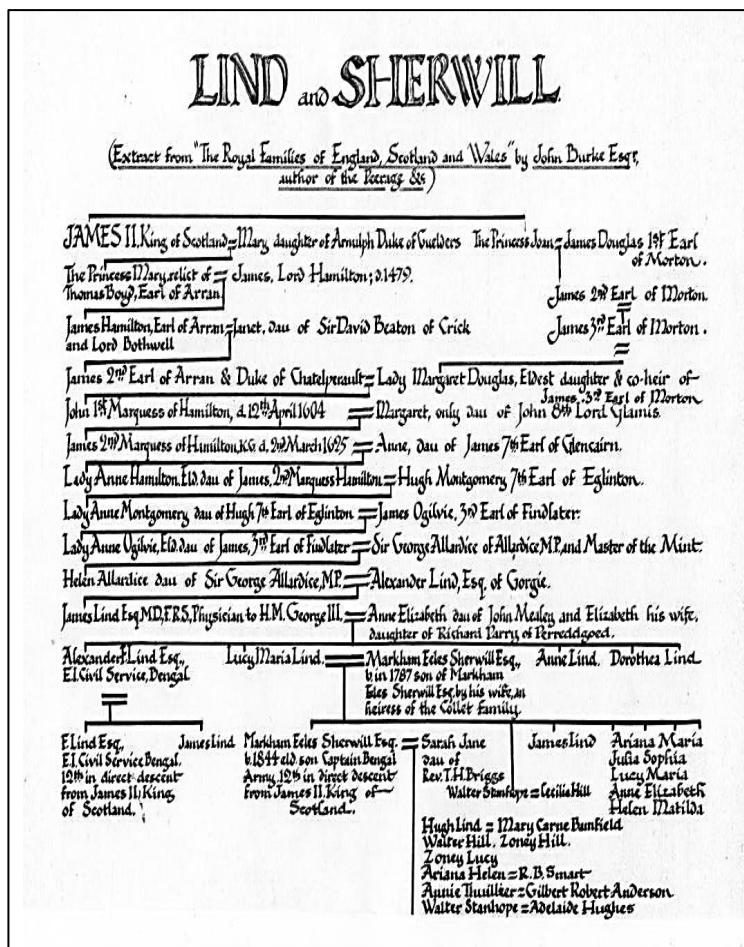 LIND and SHERWILL.
(Extract from "The Royal Families of England, Scotland and Wales" by John Burke Esqr,
author of the Peerage &c)
JAMES II, King of Scotland = Mary daughter of Arnulph Duke of Guelders The Princess Joan = James Douglas 1st Earl
of Morton.
The Princess Mary, relict of = James, Lord Hamilton; d. 1479.
Thomas Boyd, Earl of Arran
James 2nd Earl of Morton.
James Hamilton, Earl of Arran = Janet, dau of Sir David Beaton of Crick James 3rd Earl of Morton.
and Lord Bothwell
James 2nd Earl of Arran & Duke of Chatelperault = Lady Margaret Douglas, Eldest daughter & co-heir of
James, 3rd Earl of Morton
John 1st Marquess of Hamilton, d. 12th April 1604 = Margaret, only dau of John 8th Lord Glamis.
James 2nd Marquess of Hamilton, K.G. d. 2nd March 1625 = Anne, dau of James 7th Earl of Glencairn.
Lady Anne Hamilton, Eld. dau of James, 2nd Marquess Hamilton = Hugh Montgomery 7th Earl of Eglinton.
Lady Anne Montgomery dau of Hugh 7th Earl of Eglinton = James Ogilvie, 3rd Earl of Findlater.
Lady Anne Ogilvie, Eld. dau of James, 3rd Earl of Findlater = Sir George Allardice of Allardice M.P. and Master of the Mint.
Helen Allardice dau of Sir George Allardice, M.P. = Alexander Lind, Esq. of Gorgie.
James Lind Esq. M.D, F.R.S, Physician to H.M. George III. = Anne Elizabeth dau of John Mealey and Elizabeth his wife,
daughter of Richard Parry of Perreddgoed.
Alexander F Lind Esq., Lucy Maria Lind. = Markham Eeles Sherwill Esq., Anne Lind. Dorothea Lind
E.I. Civil Service, Bengal. b. in 1787 son of Markham
Eeles Sherwill Esq. by his wife, an
heiress of the Collet family.
F. Lind Esq., James Lind Markham Eeles Sherwill Esq. = Sarah Jane James Lind Ariana Maria
E.I. Civil Service Bengal. b. 1844 eld. son Captain Bengal dau of Julia Sophia
12th in direct descent Army, 12th in direct descent Rev. T.H. Briggs Lucy Maria
from James II, King from James II. King of Walter Stanhope = Cecilia Hill Anne Elizabeth
of Scotland. Scotland. Helen Matilda
Hugh Lind = Mary Carne Bunfield
Walter Hill. Zoney Hill.
Zoney Lucy
Ariana Helen = R.B. Smart
Annie Thuillier = Gilbert Robert Anderson
Walter Stanhope = Adelaide Hughes